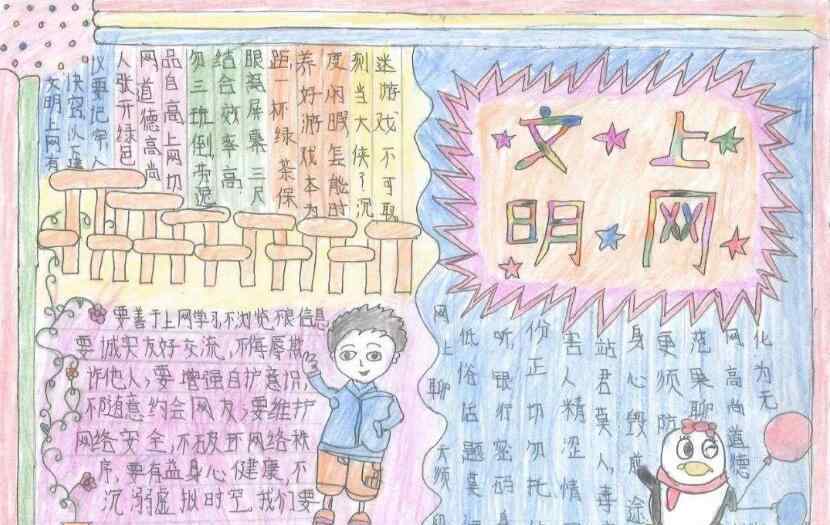 文明
上网
文明上网有
仪要记牢人
人张开绿色
网道德高尚
品自高上网切
勿三班倒劳逸
结合效率高
眼离屏幕三尺
距一杯绿茶保
养好游戏本为
度闲暇怎能时
刻当大侠了沉
迷游戏不可取
要善于上网学习,不浏览不良信息,
要诚实友好交流,不侮辱欺
诈他人;要增强自护意识,
不随意约会网友;要维护
网络安全,不破坏网络秩
序,要有益身心健康,不
沉溺虚拟时空,我们要
网上聊天须
低俗话题莫
听银行密码
份正切勿托
害人精涩情
站君莫入毒
身心毁前途
更须防
范裸聊
网高尚道德
化为无